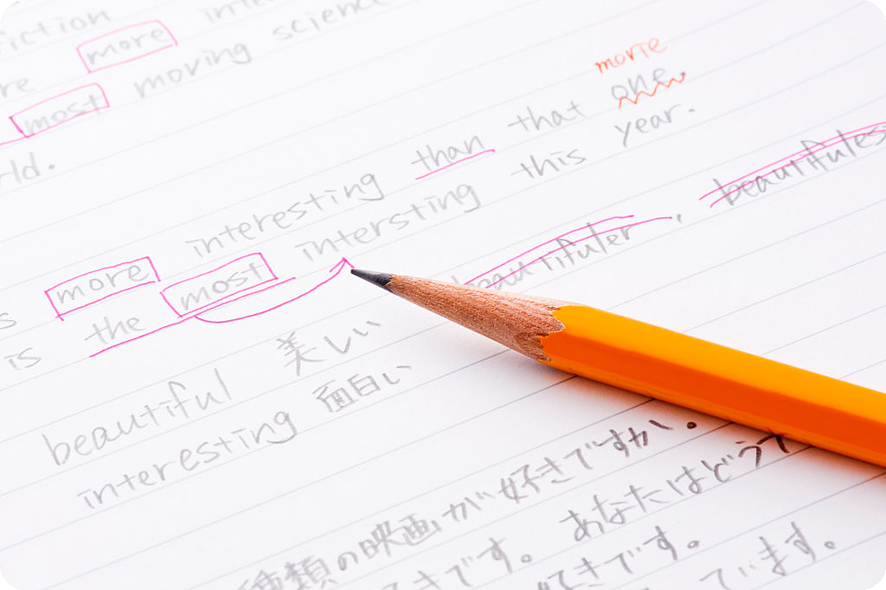 iction
re more inte
most moving science
rld.
more
s more interesting than that one
is the most intersting this year.
beautiful 美しい beautifuler, beautifules
interesting 面白い
種類の映画が好きですか。
きです。あなたはどう
好きです。
ています。